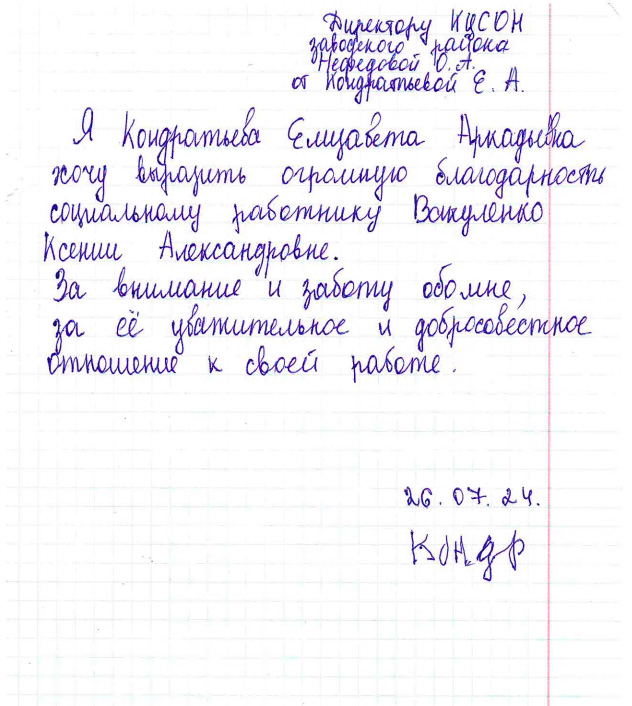 Директору КЦСОН
заводского района
Нефедовой О.А.
от Кондратьевой Е.А.
Я Кондратьева Елизавета Аркадьевна
хочу выразить огромную благодарность
социальному работнику Вакуленко
Ксении Александровне.
За внимание и заботу обо мне,
за её уважительное и добросовестное
отношение к своей работе.
26.07.24.
Кондр